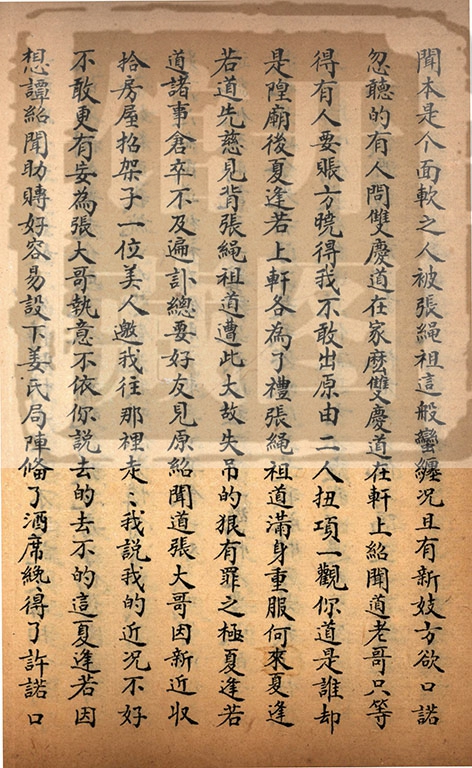 聞本是个面軟之人被張繩祖這般蠻纏况且有新妓方欲口諾
忽聽的有人問雙慶道在家麽雙慶道在軒上紹聞道老哥只等
得有人要賬方曉得我不敢出原由二人扭項一觀你道是誰却
是隍廟後夏逢若上軒各為了禮張繩祖道滿身重服何來夏逢
若道先慈見背張繩祖道遭此大故失吊的狠有罪之極夏逢若
道諸事倉卒不及遍訃總要好友見原紹聞道張大哥因新近収
拾房屋招架子一位美人邀我往那裡走〻我說我的近況不好
不敢更有妄為張大哥執意不依你說去的去不的這夏逢若因
想譚紹聞助賻好容易設下姜氏局陣俻了酒席纔〻得了許諾口